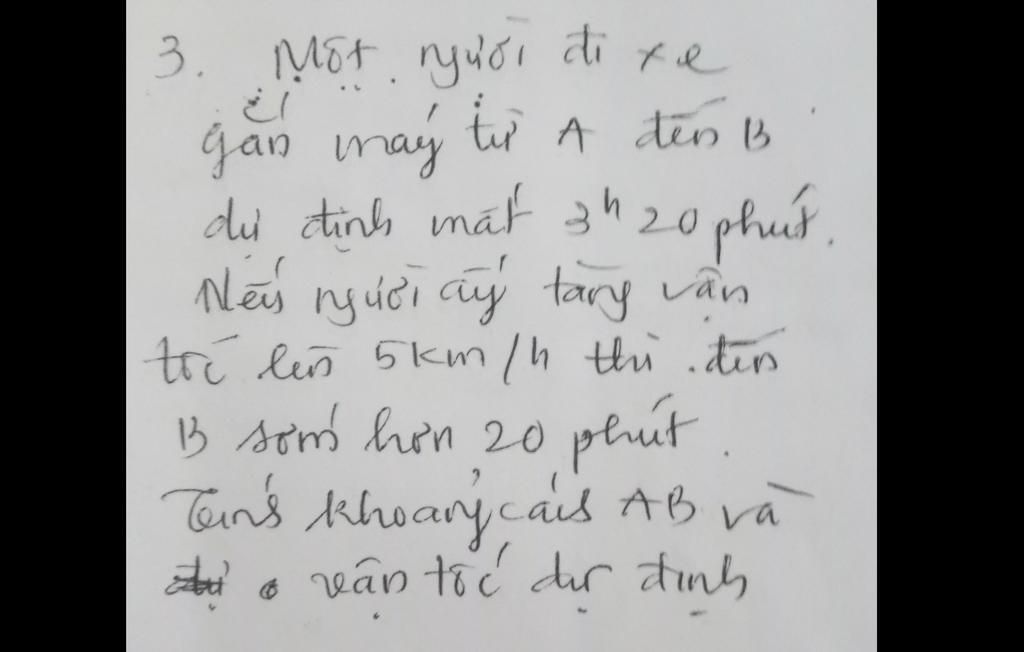 3. Một người đi xe
gắn máy từ A đến B
dự định mất 3h 20 phút.
Nếu người ấy tăng vận
tốc lên 5km/h thì đến
B sớm hơn 20 phút.
Tính khoảng cách AB và
vận tốc dự định